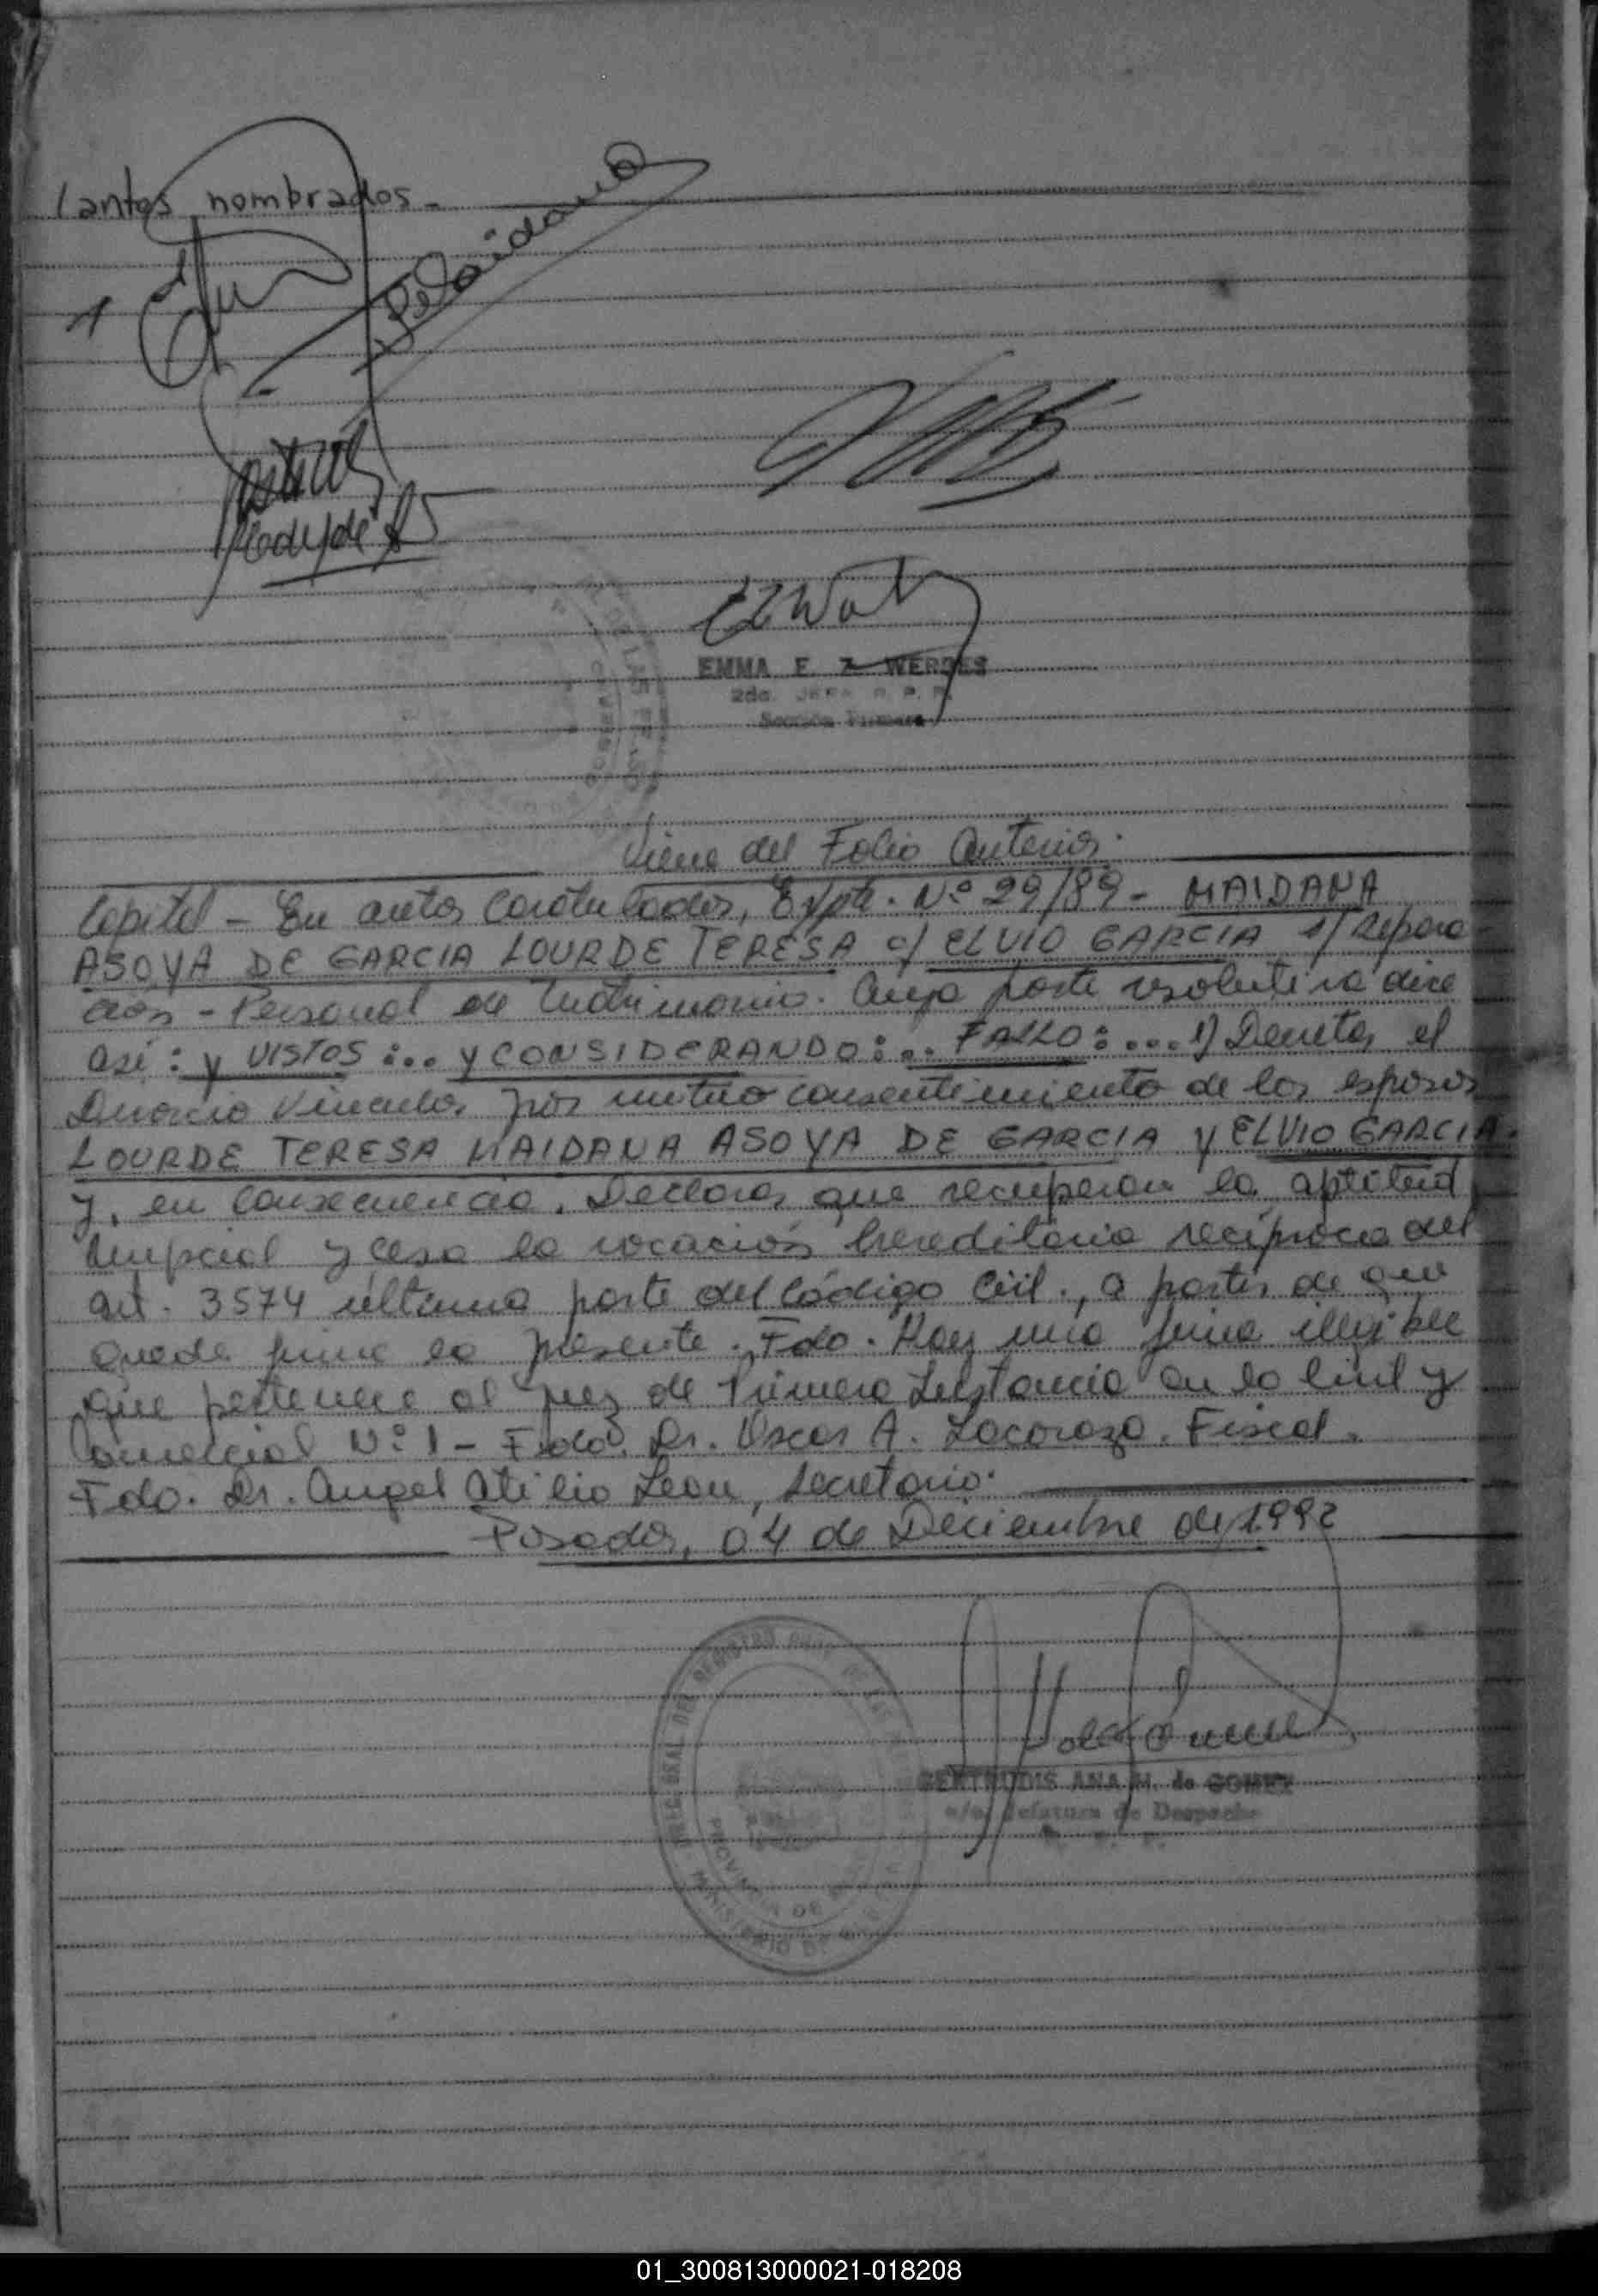 tantes nombrados.-
EMMA E. Z. WERDES
2da. JEFA R. P. P.
Sección Primera
Viene del Folio Anterior.
Capital - En autos Carátulados, Expte. Nº 29/89 - MAIDANA
ASOYA DE GARCIA LOURDE TERESA c/ ELVIO GARCIA s/ Separa-
ción - Personal de Matrimonio. Cuya parte resolutiva dice
asi: y VISTOS:... y CONSIDERANDO:.. FALLO:... 1) Decretar el
Divorcio Vincular por mutuo consentimiento de los esposos
LOURDE TERESA MAIDANA ASOYA DE GARCIA y ELVIO GARCIA.
y, en consecuencia, Declarar que recuperan la aptitud
nupcial y cesa la vocación hereditaria recíproca del
art. 3574 última parte del Código Civil., a partir de que
quede firme la presente. Fdo. Hay una firma illegible
que pertenece al Juez de Primera Instancia en lo Civil y
Comercial Nº 1 - Fdo. Dr. Oscar A. Lacorazo. Fiscal.
Fdo. Dr. Angel Atilio Leon, Secretario.
Posadas, 04 de Diciembre de 1.992
GERTRUDIS ANA M. de GOMEZ
a/c. Jefatura de Despacho
01_300813000021-018208